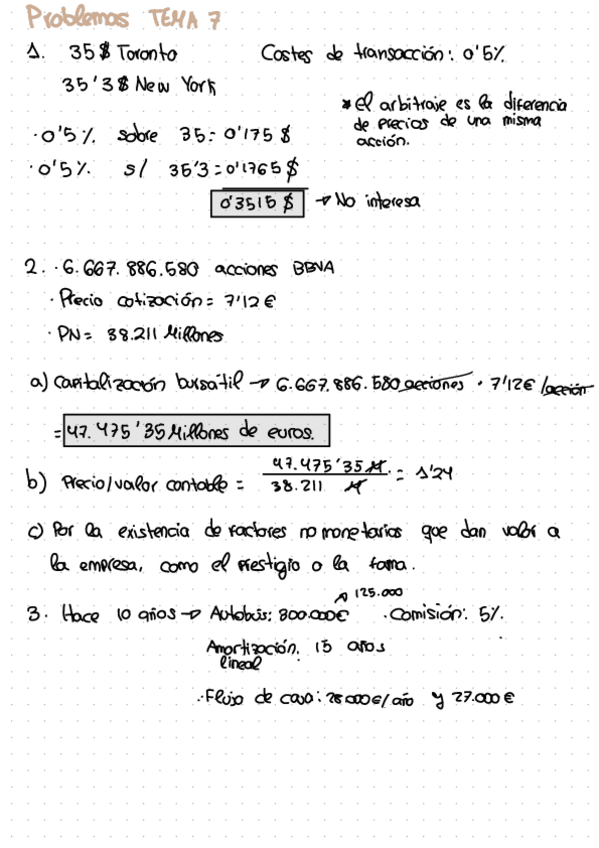 Problemas TEMA 7
1. 35$ Toronto Costes de transacción: 0'5%
35'3$ New York
* el arbitraje es la diferencia
de precios de una misma
acción.
· 0'5% sobre 35: 0'175 $
· 0'5% s/ 35'3 = 0'1765 $
0'3515 $ → No interesa
2. · 6.667.886.580 acciones BBVA
· Precio cotización = 7'12 €
· PN = 38.211 Millones
a) Capitalización bursátil → 6.667.886.580 acciones · 7'12€/acción
= 47.475'35 Millones de euros.
b) Precio/valor contable = 47.475'35 M / 38.211 M = 1'24
c) Por la existencia de factores no monetarios que dan valor a
la empresa, como el prestigio o la fama.
125.000
3. Hace 10 años → Autobús: 300.000€ · Comisión: 5%.
Amortización: 15 años
lineal
· Flujo de caja: 25.000€/año y 27.000 €